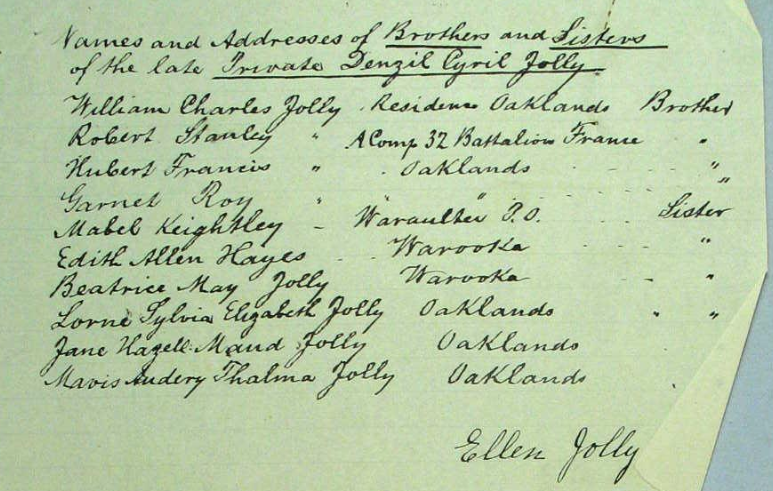 Names and Addresses of Brothers and Sisters
of the late Private Denzil Cyril Jolly.
William Charles Jolly . Residence Oaklands Brother
Robert Stanley " A Comp 32 Battalion France "
Hubert Francis " . Oaklands - - - "
Garnet Roy " " " - - - "
Mabel Keightley - P.O. - - - Sister
Edith Allen Hayes - - Warooka - - - "
Beatrice May Jolly Warooka - "
Lorne Sylvia Elizabeth Jolly Oaklands " "
Jane Hazell Maud Jolly Oaklands
Mavis Audery Thalma Jolly Oaklands
Ellen Jolly